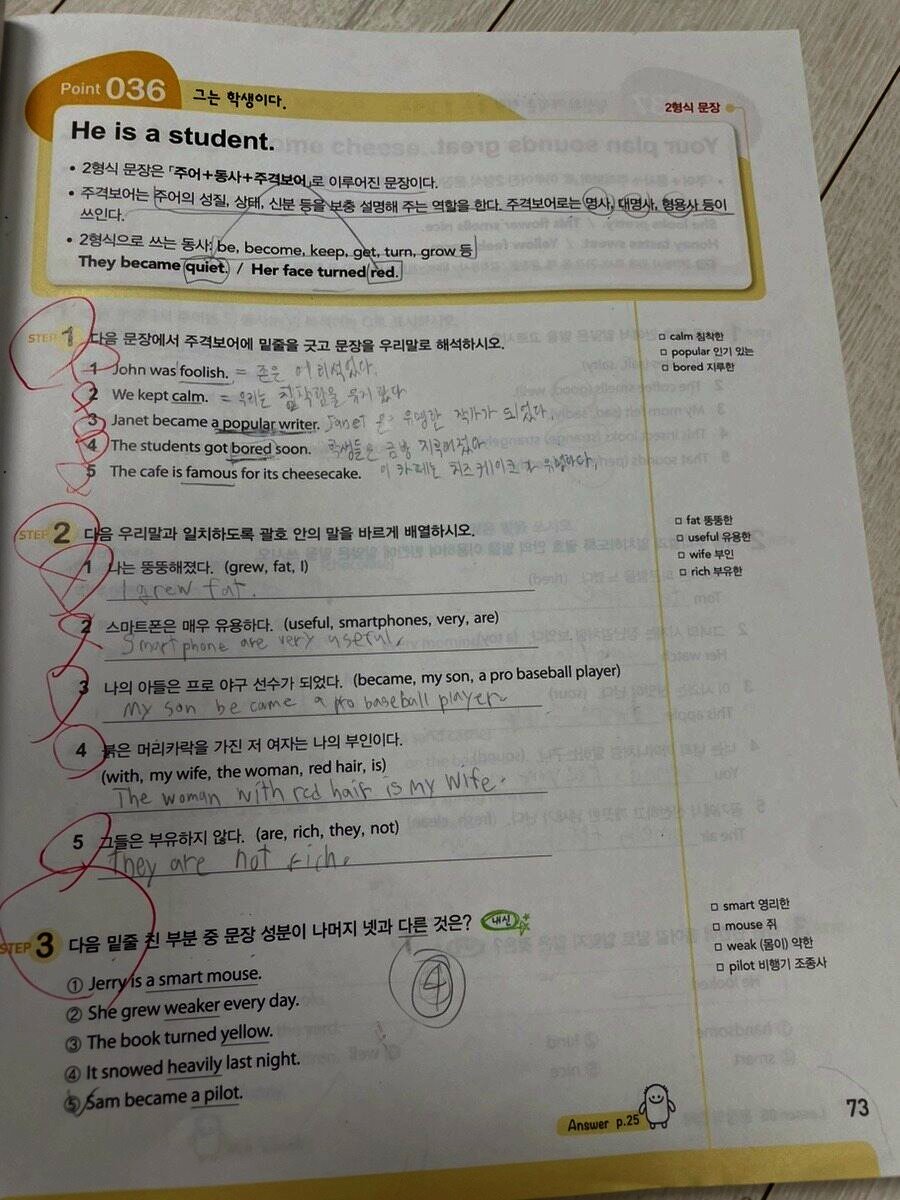 Point 036
그는 학생이다.
2형식 문장
He is a student.
• 2형식 문장은 「주어+동사+주격보어」로 이루어진 문장이다.
• 주격보어는 주어의 성질, 상태, 신분 등을 보충 설명해 주는 역할을 한다. 주격보어로는 명사, 대명사, 형용사 등이
쓰인다.
• 2형식으로 쓰는 동사: be, become, keep, get, turn, grow 등
They became quiet. / Her face turned red.
STEP 1 다음 문장에서 주격보어에 밑줄을 긋고 문장을 우리말로 해석하시오.
1 John was foolish. = 존은 어리석었다.
2 We kept calm. = 우리는 침착함을 유지했다
3 Janet became a popular writer. Janet 은 유명한 작가가 되었다.
4 The students got bored soon. 학생들은 금방 지루어졌다
5 The cafe is famous for its cheesecake. 이 카페는 치즈케이크로 유명하다.
□ calm 침착한
□ popular 인기 있는
□ bored 지루한
STEP 2 다음 우리말과 일치하도록 괄호 안의 말을 바르게 배열하시오.
1 나는 뚱뚱해졌다. (grew, fat, I)
I grew fat.
2 스마트폰은 매우 유용하다. (useful, smartphones, very, are)
Smartphone are very useful.
3 나의 아들은 프로 야구 선수가 되었다. (became, my son, a pro baseball player)
My son be came a pro baseball player
4 붉은 머리카락을 가진 저 여자는 나의 부인이다.
(with, my wife, the woman, red hair, is)
The woman with red hair is my wife.
5 그들은 부유하지 않다. (are, rich, they, not)
they are not rich.
□ fat 뚱뚱한
□ useful 유용한
□ wife 부인
□ rich 부유한
STEP 3 다음 밑줄 친 부분 중 문장 성분이 나머지 넷과 다른 것은? 내신
④
① Jerry is a smart mouse.
② She grew weaker every day.
③ The book turned yellow.
④ It snowed heavily last night.
⑤ Sam became a pilot.
□ smart 영리한
□ mouse 쥐
□ weak (몸이) 약한
□ pilot 비행기 조종사
Answer p.25
73